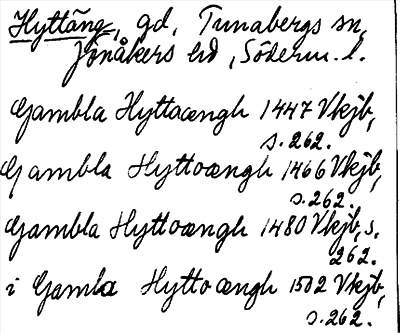 Hyttäng, gd, Tunabergs sn,
Jönåkers hd, Söderm. l.
Gambla Hyttoængh 1447 Vkjb,
s. 262.
Gambla Hyttoængh 1466 Vkjb,
s. 262.
Gambla Hyttoængh 1480 Vkjb, s.
262.
i Gamla Hyttoængh 1502 Vkjb,
s. 262.